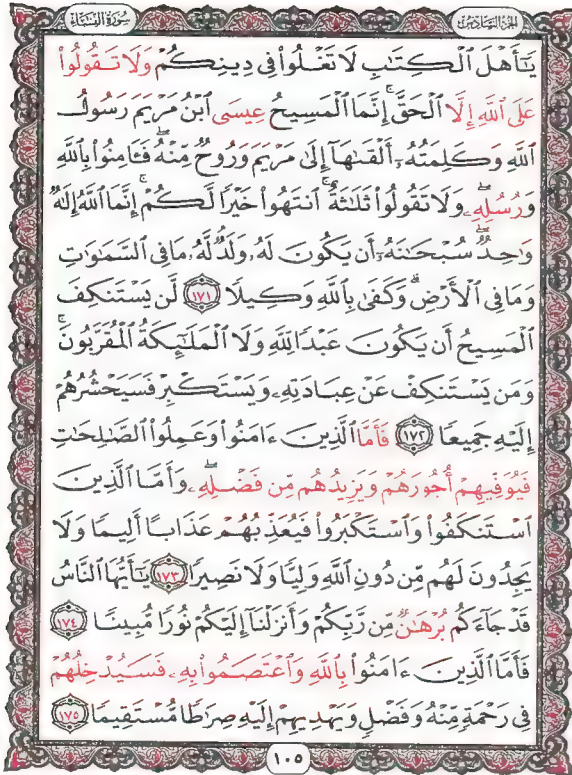 سُورَةُ النِّسَاءِ
الجُزْءُ السَّادِسُ
يَٰٓأَهْلَ ٱلْكِتَٰبِ لَا تَغْلُوا۟ فِى دِينِكُمْ وَلَا تَقُولُوا۟
عَلَى ٱللَّهِ إِلَّا ٱلْحَقَّ ۚ إِنَّمَا ٱلْمَسِيحُ عِيسَى ٱبْنُ مَرْيَمَ رَسُولُ
ٱللَّهِ وَكَلِمَتُهُۥٓ أَلْقَىٰهَآ إِلَىٰ مَرْيَمَ وَرُوحٌ مِّنْهُ ۖ فَـَٔامِنُوا۟ بِٱللَّهِ
وَرُسُلِهِۦ ۖ وَلَا تَقُولُوا۟ ثَلَٰثَةٌ ۚ ٱنتَهُوا۟ خَيْرًا لَّكُمْ ۚ إِنَّمَا ٱللَّهُ إِلَٰهٌ
وَٰحِدٌ ۖ سُبْحَٰنَهُۥٓ أَن يَكُونَ لَهُۥ وَلَدٌ ۘ لَّهُۥ مَا فِى ٱلسَّمَٰوَٰتِ
وَمَا فِى ٱلْأَرْضِ ۗ وَكَفَىٰ بِٱللَّهِ وَكِيلًا ١٧١ لَّن يَسْتَنكِفَ
ٱلْمَسِيحُ أَن يَكُونَ عَبْدًا لِّلَّهِ وَلَا ٱلْمَلَٰٓئِكَةُ ٱلْمُقَرَّبُونَ ۚ
وَمَن يَسْتَنكِفْ عَنْ عِبَادَتِهِۦ وَيَسْتَكْبِرْ فَسَيَحْشُرُهُمْ
إِلَيْهِ جَمِيعًا ١٧٢ فَأَمَّا ٱلَّذِينَ ءَامَنُوا۟ وَعَمِلُوا۟ ٱلصَّٰلِحَٰتِ
فَيُوَفِّيهِمْ أُجُورَهُمْ وَيَزِيدُهُم مِّن فَضْلِهِۦ ۖ وَأَمَّا ٱلَّذِينَ
ٱسْتَنكَفُوا۟ وَٱسْتَكْبَرُوا۟ فَيُعَذِّبُهُمْ عَذَابًا أَلِيمًا وَلَا
يَجِدُونَ لَهُم مِّن دُونِ ٱللَّهِ وَلِيًّا وَلَا نَصِيرًا ١٧٣ يَٰٓأَيُّهَا ٱلنَّاسُ
قَدْ جَآءَكُم بُرْهَٰنٌ مِّن رَّبِّكُمْ وَأَنزَلْنَآ إِلَيْكُمْ نُورًا مُّبِينًا ١٧٤
فَأَمَّا ٱلَّذِينَ ءَامَنُوا۟ بِٱللَّهِ وَٱعْتَصَمُوا۟ بِهِۦ فَسَيُدْخِلُهُمْ
فِى رَحْمَةٍ مِّنْهُ وَفَضْلٍ وَيَهْدِيهِمْ إِلَيْهِ صِرَٰطًا مُّسْتَقِيمًا ١٧٥
١٠٥